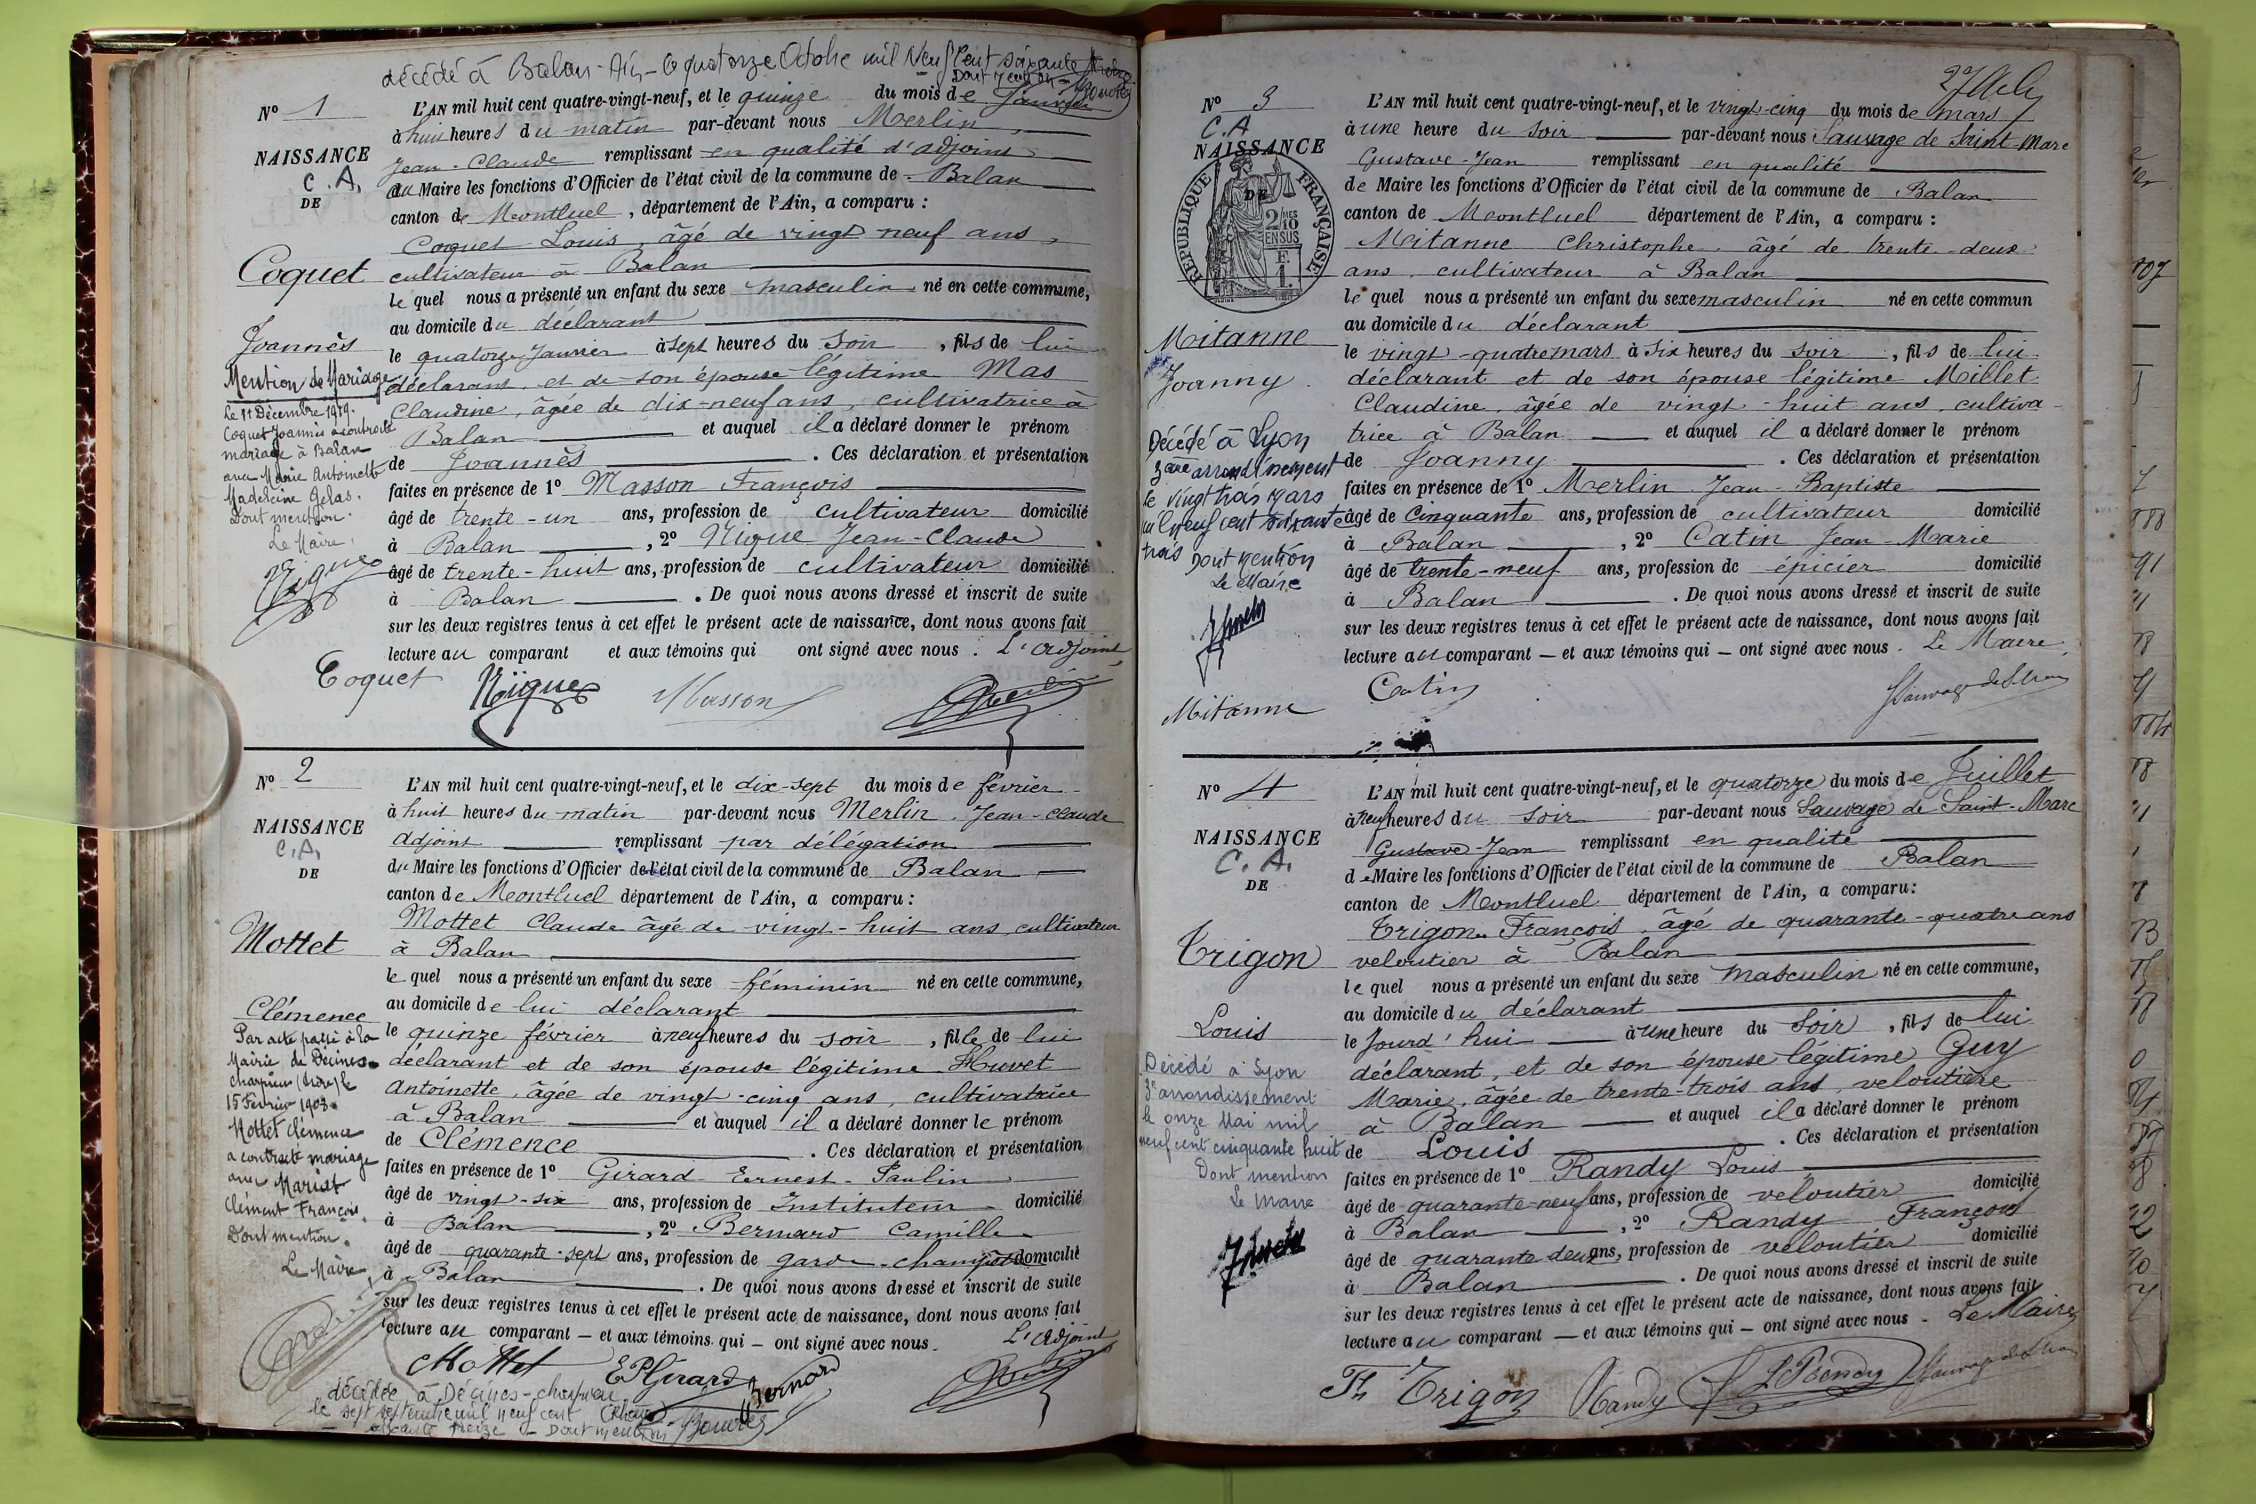 décédé à Balan - Ain - le quatorze Octobre mil Neuf Cent soixante
Dont mention
N° 1
NAISSANCE
C. A.
DE
Coquet
Joannès
Mention de Mariage
Le 11 Décembre 1919.
Coquet Joannès a contracté
mariage à Balan
avec Marie Antoinette
Madeleine Gelas.
Dont mention.
Le Maire,
L'AN mil huit cent quatre-vingt-neuf, et le quinze du mois de Janvier
à huit heures du matin par-devant nous Merlin
Jean-Claude remplissant en qualité d'adjoint
au Maire les fonctions d'Officier de l'état civil de la commune de Balan
canton de Montluel, département de l'Ain, a comparu :
Coquet Louis, âgé de vingt neuf ans,
cultivateur à Balan
lequel nous a présenté un enfant du sexe masculin né en cette commune,
au domicile du déclarant
le quatorze Janvier à sept heures du soir, fils de lui
déclarant et de son épouse légitime Mas
Claudine, âgée de dix-neuf ans, cultivatrice à
Balan et auquel il a déclaré donner le prénom
de Joannès. Ces déclaration et présentation
faites en présence de 1° Masson François
âgé de trente-un ans, profession de cultivateur domicilié
à Balan, 2° Nique Jean-Claude
âgé de trente-huit ans, profession de cultivateur domicilié
à Balan. De quoi nous avons dressé et inscrit de suite
sur les deux registres tenus à cet effet le présent acte de naissance, dont nous avons fait
lecture au comparant et aux témoins qui ont signé avec nous. L'adjoint
Coquet Masson
N° 2
NAISSANCE
C. A.
DE
Mottet
Clémence
Par acte passé à la
Mairie de Décines-
Charpieu (Isère) le
15 Février 1908
Mottet Clémence
a contracté mariage
avec Mariat
Clément François.
Dont mention.
Le Maire,
L'AN mil huit cent quatre-vingt-neuf, et le dix-sept du mois de février
à huit heures du matin par-devant nous Merlin Jean-Claude
adjoint remplissant par délégation
du Maire les fonctions d'Officier de l'état civil de la commune de Balan
canton de Montluel département de l'Ain, a comparu :
Mottet Claude âgé de vingt-huit ans, cultivateur
à Balan
lequel nous a présenté un enfant du sexe féminin né en cette commune,
au domicile de lui déclarant
le quinze février à neuf heures du soir, fille de lui
déclarant et de son épouse légitime Huvet
Antoinette, âgée de vingt-cinq ans, cultivatrice
à Balan et auquel il a déclaré donner le prénom
de Clémence. Ces déclaration et présentation
faites en présence de 1° Girard Ernest-Paulin
âgé de vingt-six ans, profession de Instituteur domicilié
à Balan, 2° Bernard Camille
âgé de quarante-sept ans, profession de garde-champêtre domicilié
à Balan. De quoi nous avons dressé et inscrit de suite
sur les deux registres tenus à cet effet le présent acte de naissance, dont nous avons fait
lecture au comparant — et aux témoins qui — ont signé avec nous. L'adjoint
Mottet EPGirard Bernard
décédée à Décines-Charpieu
le sept septembre mil neuf cent (Rhône)
soixante treize - Dont mention
N° 3
C. A
NAISSANCE
DE
RÉPUBLIQUE FRANÇAISE
Mitanne
Joanny
Décédé à Lyon
3ème arrondissement
le vingt trois mars
mil neuf cent soixante
trois Dont mention
Le Maire
L'AN mil huit cent quatre-vingt-neuf, et le vingt-cinq du mois de mars
à une heure du soir par-devant nous Sauvage de Saint-Marc
Gustave-Jean remplissant en qualité
de Maire les fonctions d'Officier de l'état civil de la commune de Balan
canton de Montluel département de l'Ain, a comparu :
Mitanne Christophe, âgé de trente-deux
ans, cultivateur à Balan
lequel nous a présenté un enfant du sexe masculin né en cette commun
au domicile du déclarant
le vingt-quatre mars à six heures du soir, fils de lui
déclarant et de son épouse légitime Millet
Claudine, âgée de vingt-huit ans, cultiva-
trice à Balan et auquel il a déclaré donner le prénom
de Joanny. Ces déclaration et présentation
faites en présence de 1° Merlin Jean-Baptiste
âgé de Cinquante ans, profession de cultivateur domicilié
à Balan, 2° Catin Jean-Marie
âgé de trente-neuf ans, profession de épicier domicilié
à Balan. De quoi nous avons dressé et inscrit de suite
sur les deux registres tenus à cet effet le présent acte de naissance, dont nous avons fait
lecture au comparant — et aux témoins qui — ont signé avec nous. Le Maire,
Mitanne Catin
N° 4
NAISSANCE
C. A.
DE
Trigon
Louis
Décédé à Lyon
3e arrondissement
le onze Mai mil
neuf cent cinquante huit
Dont mention
Le Maire
L'AN mil huit cent quatre-vingt-neuf, et le quatorze du mois de Juillet
à neuf heures du soir par-devant nous Sauvage de Saint-Marc
Gustave-Jean remplissant en qualité
de Maire les fonctions d'Officier de l'état civil de la commune de Balan
canton de Montluel département de l'Ain, a comparu :
Trigon François, âgé de quarante-quatre ans
veloutier à Balan
lequel nous a présenté un enfant du sexe masculin né en cette commune,
au domicile du déclarant
le Jourd'hui à une heure du soir, fils de lui
déclarant, et de son épouse légitime Guy
Marie, âgée de trente-trois ans, veloutière
à Balan et auquel il a déclaré donner le prénom
de Louis. Ces déclaration et présentation
faites en présence de 1° Randy Louis
âgé de quarante-neuf ans, profession de veloutier domicilié
à Balan, 2° Randy François
âgé de quarante deux ans, profession de veloutier domicilié
à Balan. De quoi nous avons dressé et inscrit de suite
sur les deux registres tenus à cet effet le présent acte de naissance, dont nous avons fait
lecture au comparant — et aux témoins qui — ont signé avec nous. Le Maire,
Trigon Randy